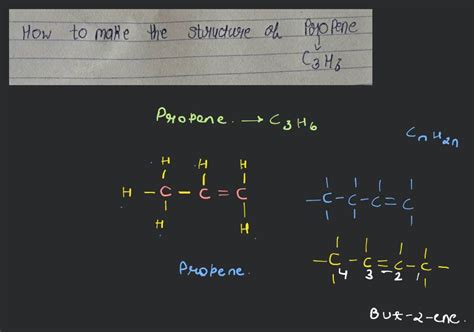 How to make the structure of Propene
C3H3
Propene. → C3H6
CnH2n
H H H
H - C - C = C
H H
Propene.
- C - C - C = C
- C - C = C - C -
4 3 2 1
But-2-ene.